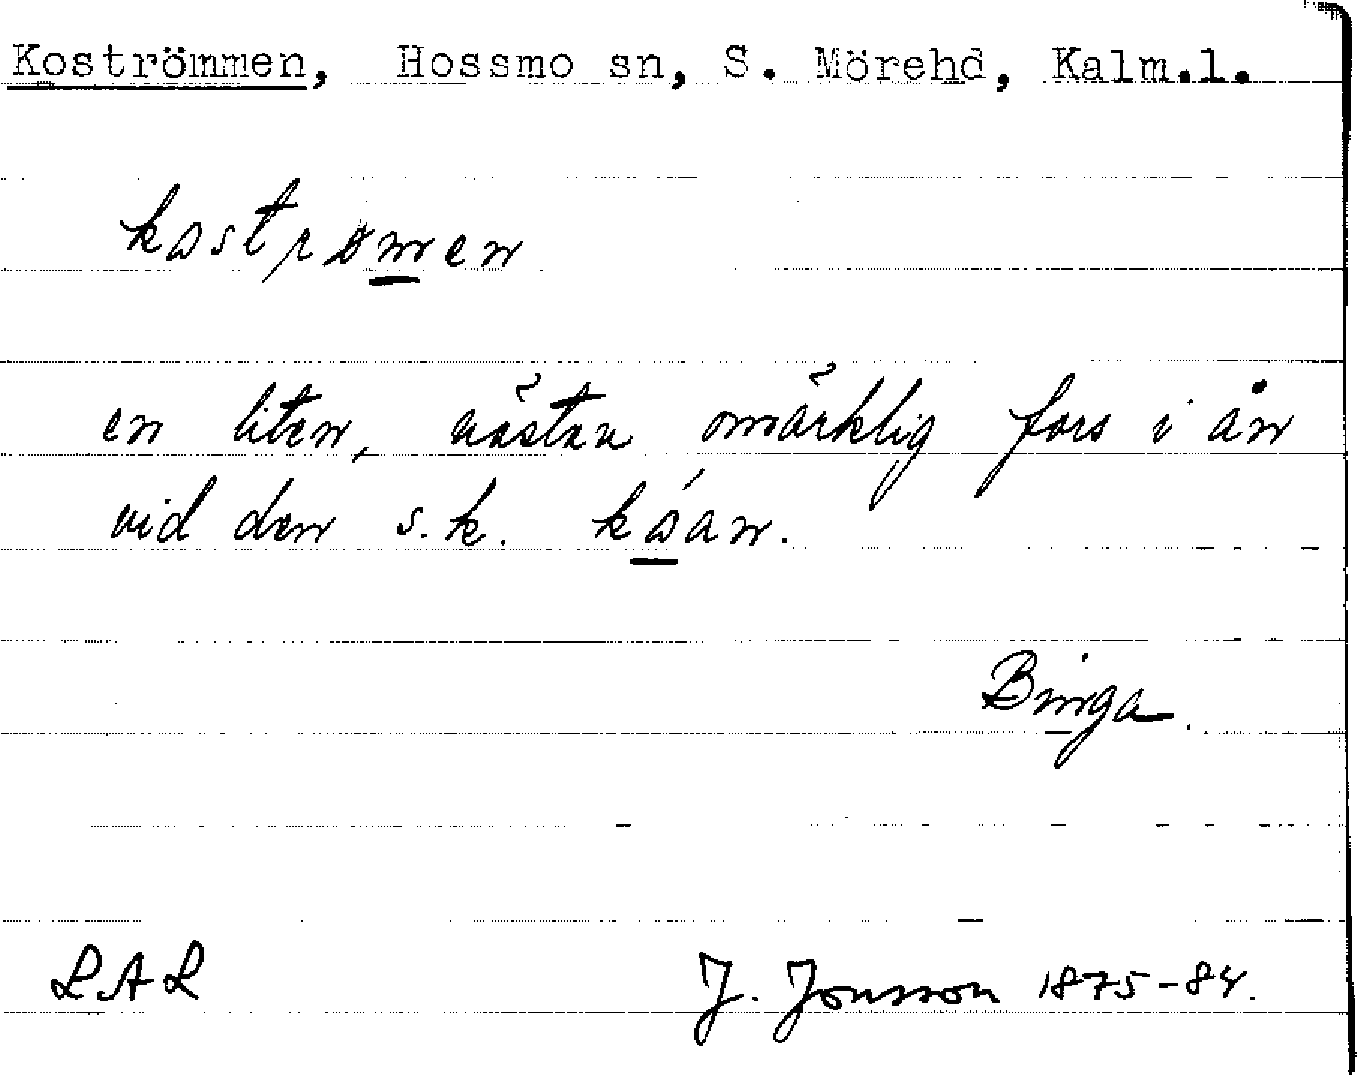 Koströmmen, Hossmo sn, S. Mörehd, Kalm.l.
kostrømen
en liten, nästan omärklig fors i ån
vid den s.k. kóan.
Binga.
LAL
J. Jonsson 1875-84.